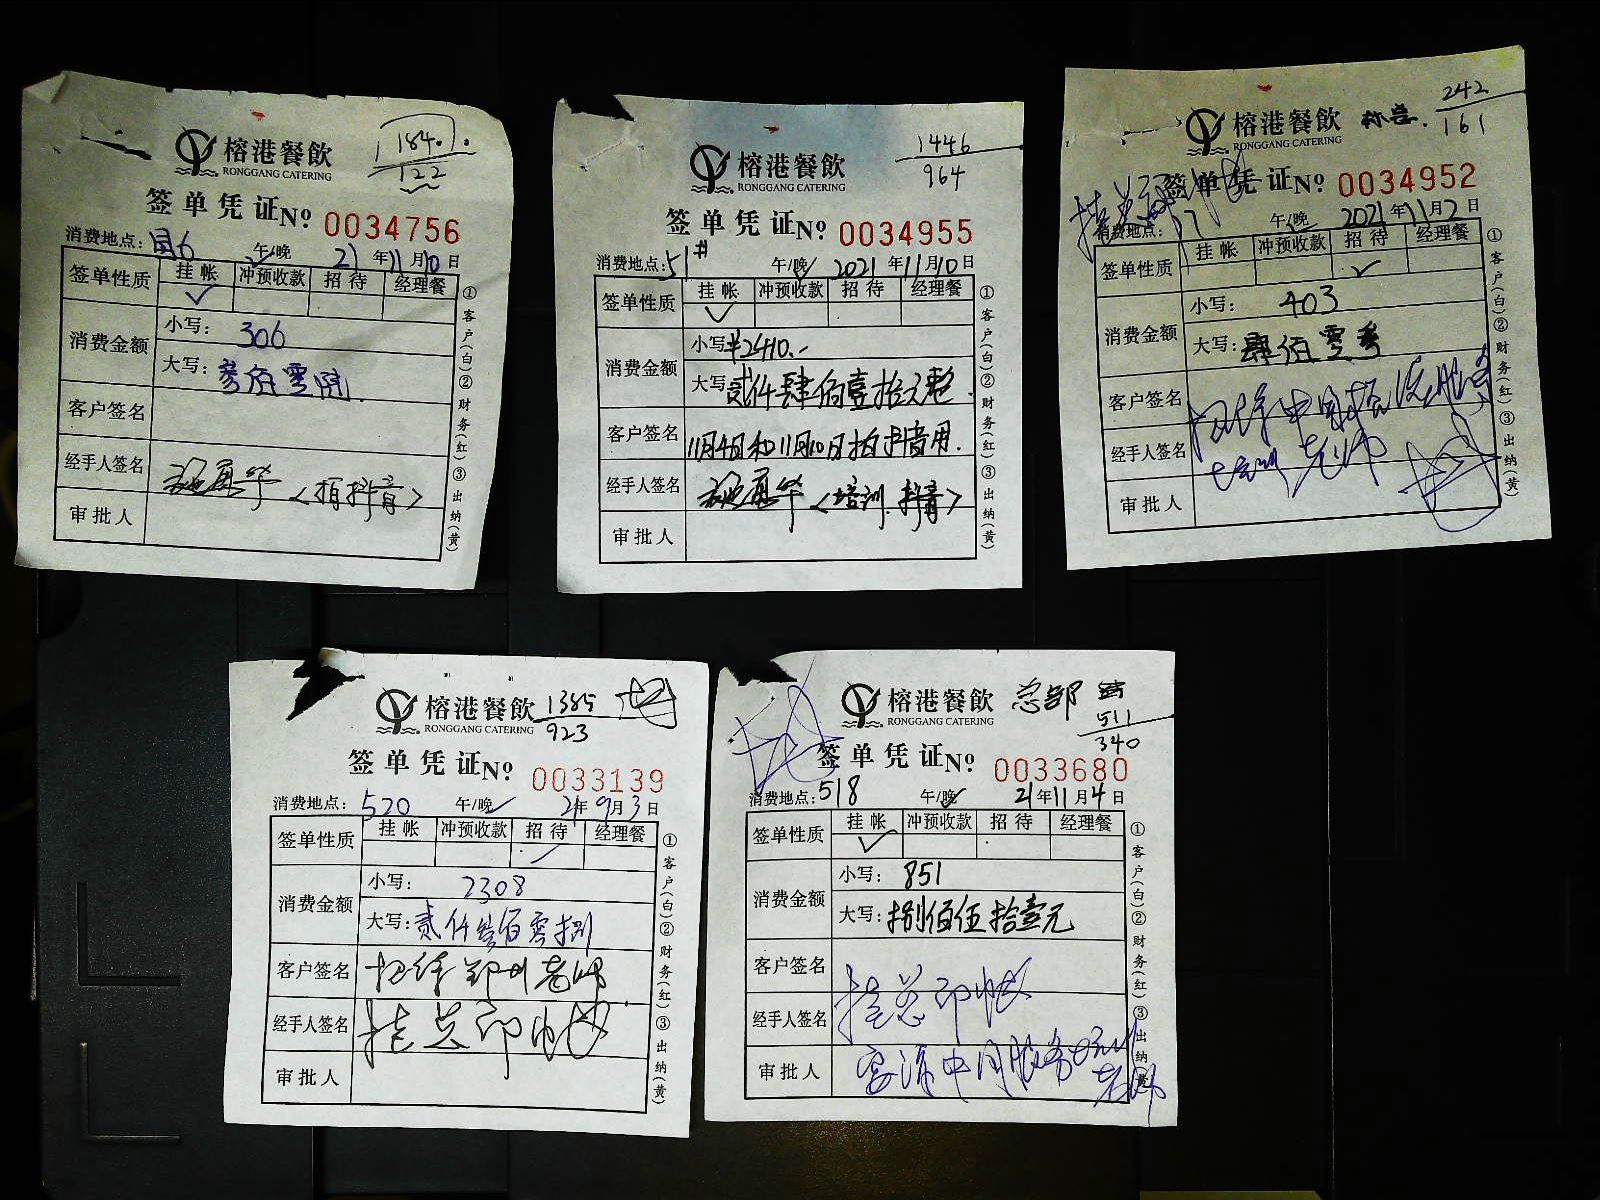 184.
122
榕港餐飲
RONGGANG CATERING
签单凭证No 0034756
消费地点: 午/晚 21年11月10日
签单性质 挂帐 冲预收款 招待 经理餐
✓
消费金额 小写: 306
大写: 叁佰零陆
客户签名
经手人签名 〈拍抖音〉
审批人
①客户(白)②财务(红)③出纳(黄)
1446
964
榕港餐飲
RONGGANG CATERING
签单凭证No 0034955
消费地点: 51# 午/晚✓ 2021年11月10日
签单性质 挂帐 冲预收款 招待 经理餐
✓
消费金额 小写: ¥2410.-
大写: 贰仟肆佰壹拾元整.
客户签名 11月4日和11月10日拍抖音用.
经手人签名 〈培训.抖音〉
审批人
①客户(白)②财务(红)③出纳(黄)
242
161
榕港餐飲
RONGGANG CATERING
签单凭证No 0034952
挂总部
消费地点: 午/晚 2021年11月2日
签单性质 挂帐 冲预收款 招待 经理餐
✓
消费金额 小写: 403
大写: 肆佰零叁
客户签名 招待中国
经手人签名 培训老师
审批人
①客户(白)②财务(红)③出纳(黄)
1385
923
榕港餐飲
RONGGANG CATERING
签单凭证No 0033139
消费地点: 520 午/晚✓ 21年9月3日
签单性质 挂帐 冲预收款 招待 经理餐
✓
消费金额 小写: 2308
大写: 贰仟叁佰零捌
客户签名 招待郑州老师
经手人签名 挂总部帐
审批人
①客户(白)②财务(红)③出纳(黄)
总部
511
340
榕港餐飲
RONGGANG CATERING
签单凭证No 0033680
消费地点: 518 午/晚✓ 21年11月4日
签单性质 挂帐 冲预收款 招待 经理餐
✓
消费金额 小写: 851
大写: 捌佰伍拾壹元
客户签名
经手人签名 挂总部帐
审批人 宴请中国服务培训老师
①客户(白)②财务(红)③出纳(黄)